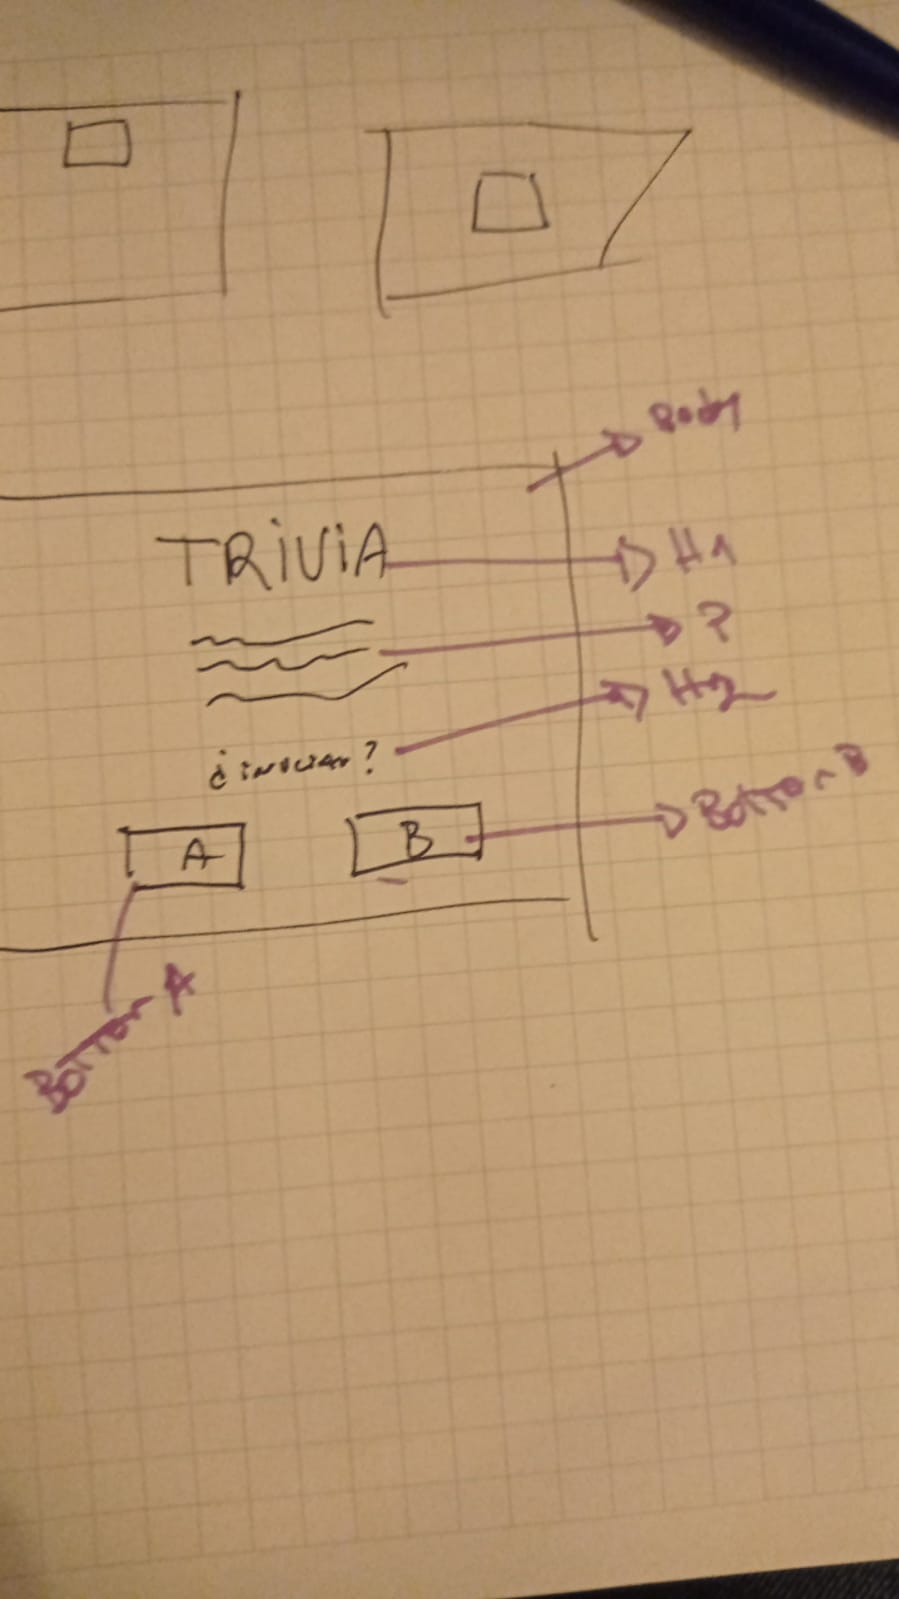 Body
TRiViA
H1
?
H2
¿iniciar?
A
B
Botton B
Botton A